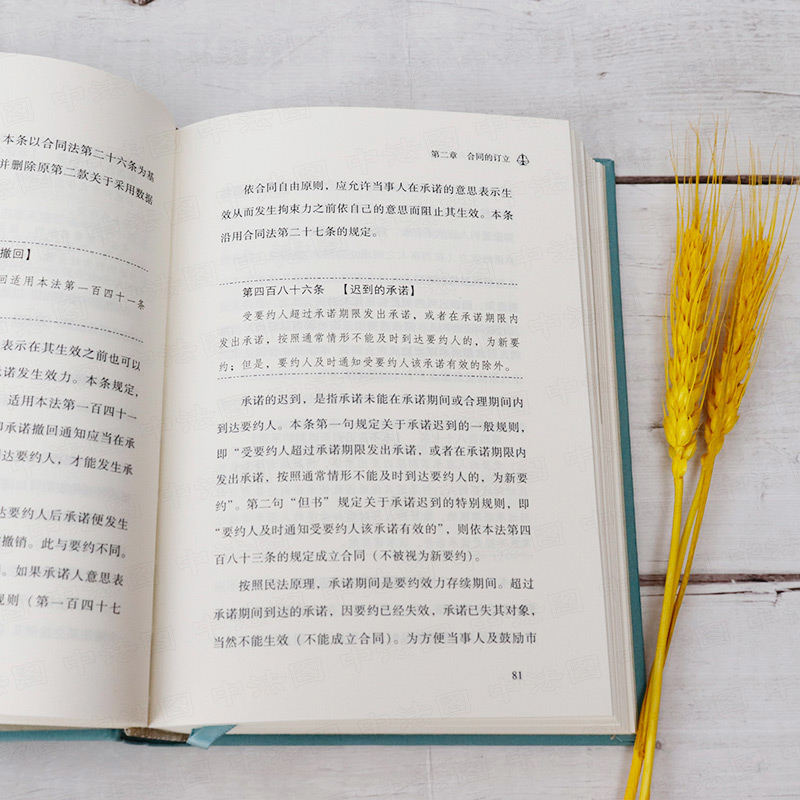 本条以合同法第二十六条为基
并删除原第二款关于采用数据
撤回】
回适用本法第一百四十一条
表示在其生效之前也可以
诺发生效力。本条规定，
适用本法第一百四十一
承诺撤回通知应当在承
达要约人，才能发生承
达要约人后承诺便发生
撤销。此与要约不同。
如果承诺人意思表
规则（第一百四十七
第二章 合同的订立
依合同自由原则，应允许当事人在承诺的意思表示生
效从而发生拘束力之前依自己的意思而阻止其生效。本条
沿用合同法第二十七条的规定。
第四百八十六条 【迟到的承诺】
受要约人超过承诺期限发出承诺，或者在承诺期限内
发出承诺，按照通常情形不能及时到达要约人的，为新要
约；但是，要约人及时通知受要约人该承诺有效的除外。
承诺的迟到，是指承诺未能在承诺期间或合理期间内
到达要约人。本条第一句规定关于承诺迟到的一般规则，
即“受要约人超过承诺期限发出承诺，或者在承诺期限内
发出承诺，按照通常情形不能及时到达要约人的，为新要
约”。第二句“但书”规定关于承诺迟到的特别规则，即
“要约人及时通知受要约人该承诺有效的”，则依本法第四
百八十三条的规定成立合同（不被视为新要约）。
按照民法原理，承诺期间是要约效力存续期间。超过
承诺期间到达的承诺，因要约已经失效，承诺已失其对象，
当然不能生效（不能成立合同）。为方便当事人及鼓励市
81